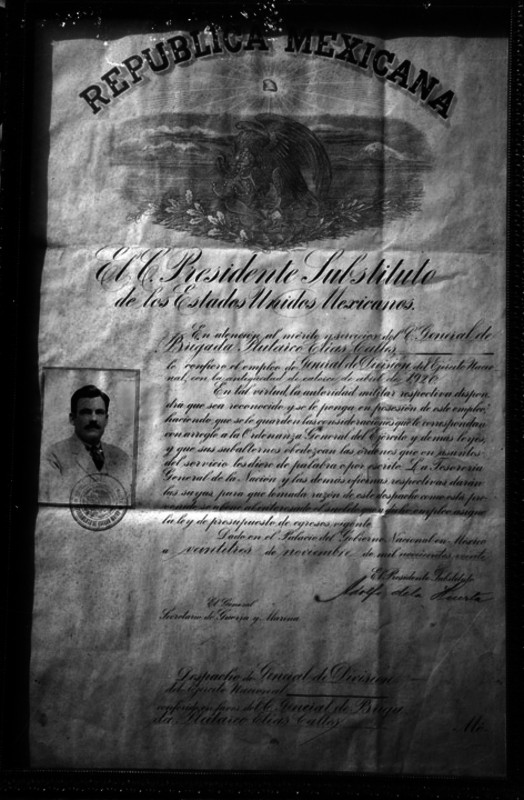 REPUBLICA MEXICANA
El C. Presidente Substituto
de los Estados Unidos Mexicanos.
En atención al mérito y servicios del C. General de
Brigada Plutarco Elías Calles
le confiere el empleo de General de División del Ejército Nacio-
nal, con la antigüedad de catorce de abril de 1920
En tal virtud, la autoridad militar respectiva dispon-
drá que sea reconocido y se le ponga en posesión de este empleo;
haciendo que se le guarden las consideraciones que le correspondan
con arreglo á la Ordenanza General del Ejército y demás leyes,
y que sus subalternos obedezcan las órdenes que en asuntos
del servicio les diere de palabra o por escrito. La Tesorería
General de la Nación y las demás oficinas respectivas darán
las suyas, para que tomada razón de este despacho como está pre-
empleo asigna
la ley de presupuesto de egresos vigente.
Dado en el Palacio del Gobierno Nacional en México
a veintitres de noviembre de mil novecientos veinte.
El Presidente Substituto
Adolfo de la Huerta
El General
Secretario de Guerra y Marina
Despacho de General de División
del Ejército Nacional
conferido en favor del C. General de Briga
da Plutarco Elías Calles